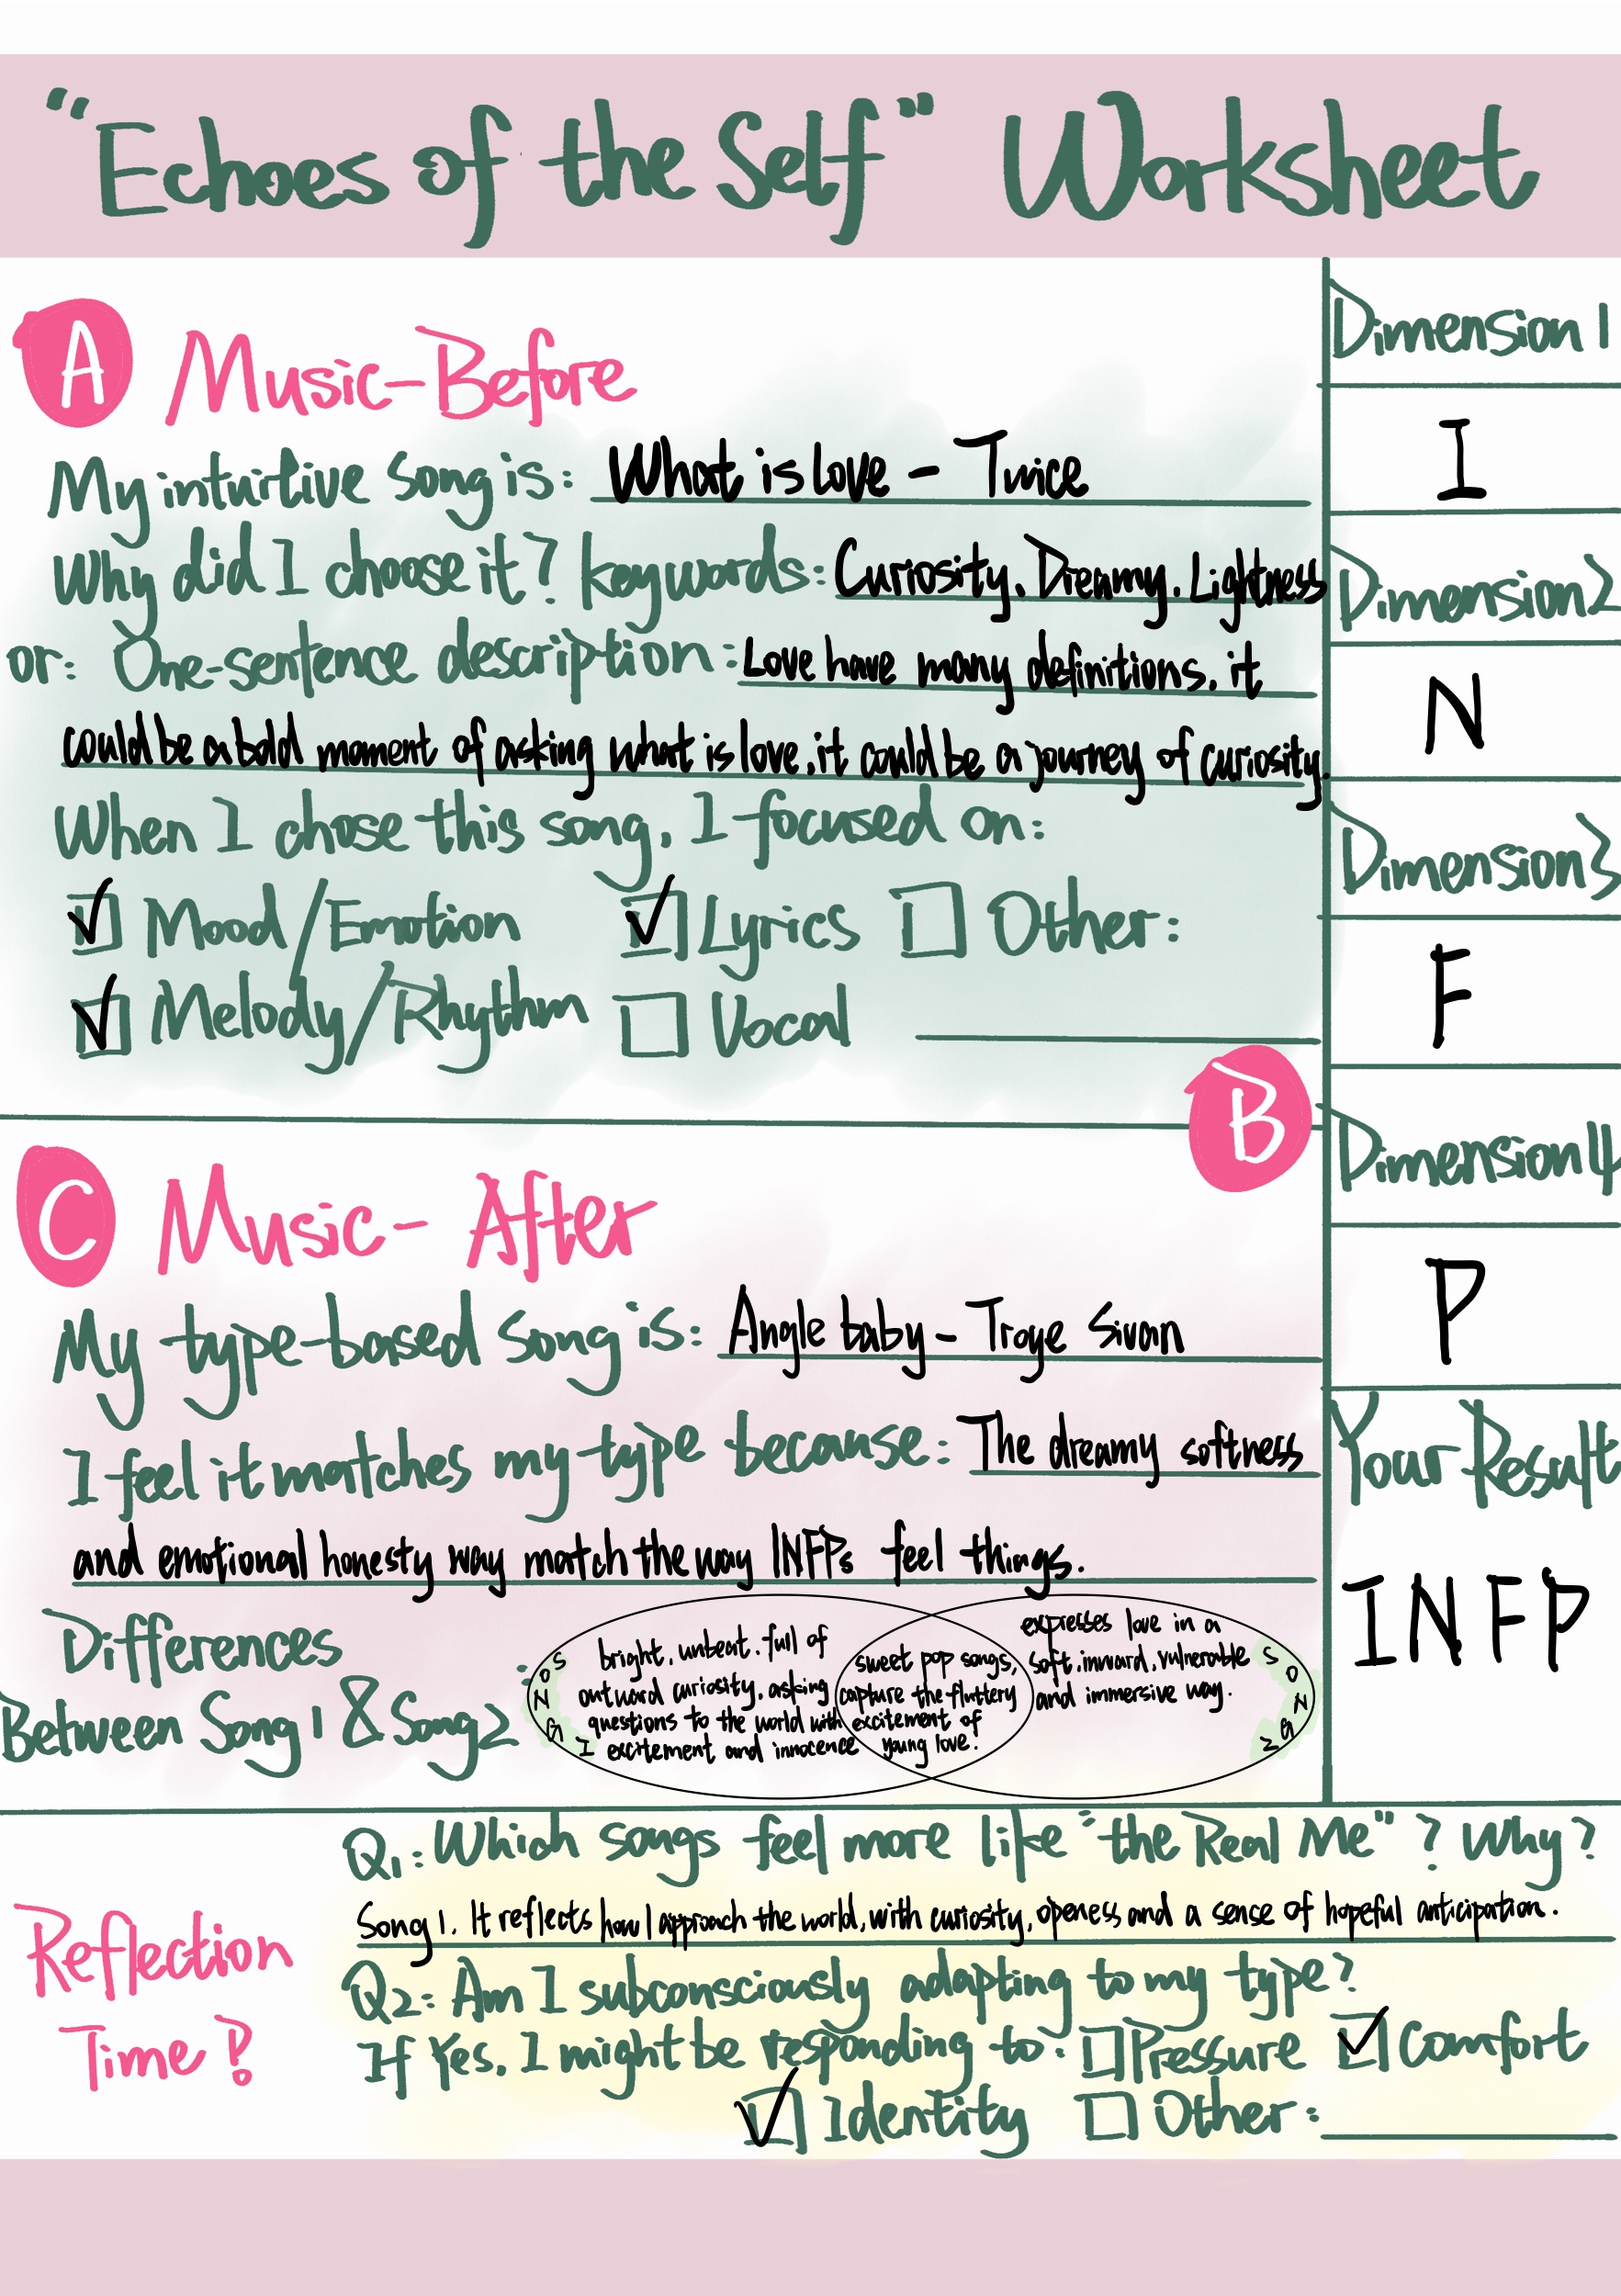 "Echoes of the Self" Worksheet
A Music-Before
My intuitive song is: What is love - Twice
Why did I choose it? keywords: Curiosity. Dreamy. Lightness
or: One-sentence description: Love have many definitions. it
could be a bold moment of asking what is love, it could be a journey of curiosity.
When I chose this song, I focused on:
Mood/Emotion Lyrics Other:
Melody/Rhythm Vocal
B
Dimension 1
I
Dimension 2
N
Dimension 3
F
Dimension 4
P
Your Result
INFP
C Music- After
My type-based song is: Angle baby - Troye Sivan
I feel it matches my type because: The dreamy softness
and emotional honesty way match the way INFPs feel things.
Differences
Between Song 1 & Song 2:
SONG 1
bright, unbeat. full of
outward curiosity, asking
questions to the world with
excitement and innocence
sweet pop songs,
capture the fluttery
excitement of
young love.
expresses love in a
soft, inward, vulnerable
and immersive way.
SONG 2
Reflection
Time?!
Q1: Which songs feel more like "the Real Me"? Why?
Song 1. It reflects how I approach the world, with curiosity, openess and a sense of hopeful anticipation.
Q2: Am I subconsciously adapting to my type?
If Yes, I might be responding to: Pressure Comfort
Identity Other: